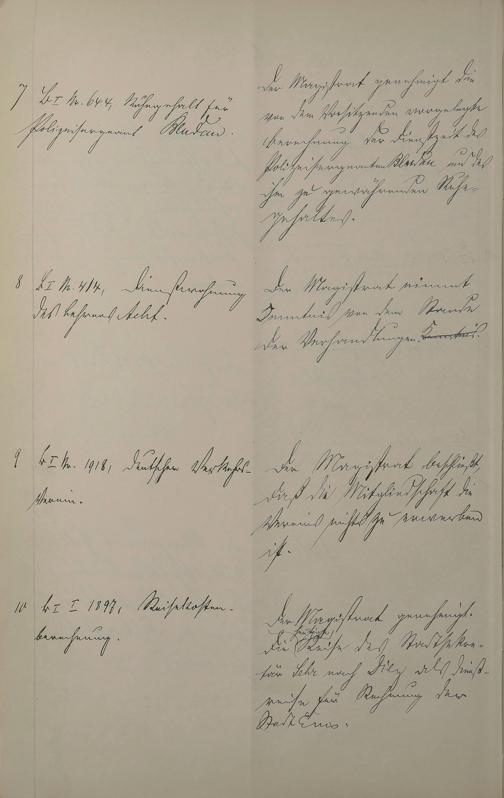 7 b I Nr. 644, Ruhegehalt für
Polizeisergeant Bledau.
Der Magistrat genehmigt die
von dem Vorsitzenden vorgelegte
Berechnung der Dienstzeit des
Polizeisergeanten Bledau und des
ihm zu gewährenden Ruhe-
gehaltes.
8 b I Nr. 414, Dienstwohnung
des Lehrers
Der Magistrat nimmt
Kenntnis von dem Stande
der Verhandlungen. Kenntnis.
9 b I Nr. 1918, Deutscher Verkehrs-
Verein.
Der Magistrat beschließt,
daß die Mitgliedschaft die
Vereins nicht zu erwerben
ist.
10 b I I 1897, Reisekosten-
berechnung.
Der Magistrat genehmigt.
heutige
die Reise des Stadtsekre-
tär nach Diez als Dienst-
reise für Rechnung der
Stadt Ems.